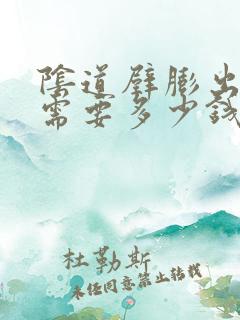 陰道壁膨出
需要多少錢
杜勒斯
未经同意禁止转载